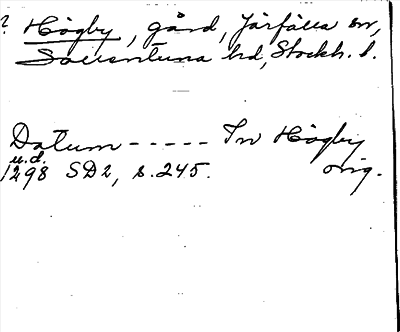 ? Högby, gård, Järfälla sn,
Sollentuna hd, Stockh. l.
Datum ----- In Högby
u.d.
1298 SD2, s. 245. orig.